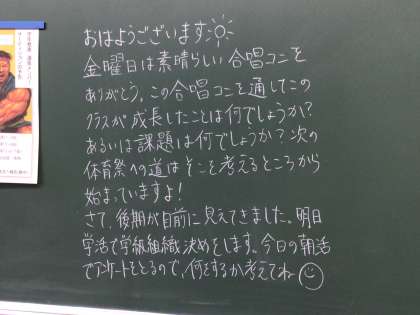 おはようございます
金曜日は素晴らしい合唱コンを
ありがとう。この合唱コンを通してこの
クラスが成長したことは何でしょうか?
あるいは課題は何でしょうか?次の
体育祭への道はそこを考えるところから
始まっていますよ!
さて、後期が目前に見えてきました。明日
学活で学級組織決めをします。今日の朝活
でアンケートをとるので、何をするか考えてね